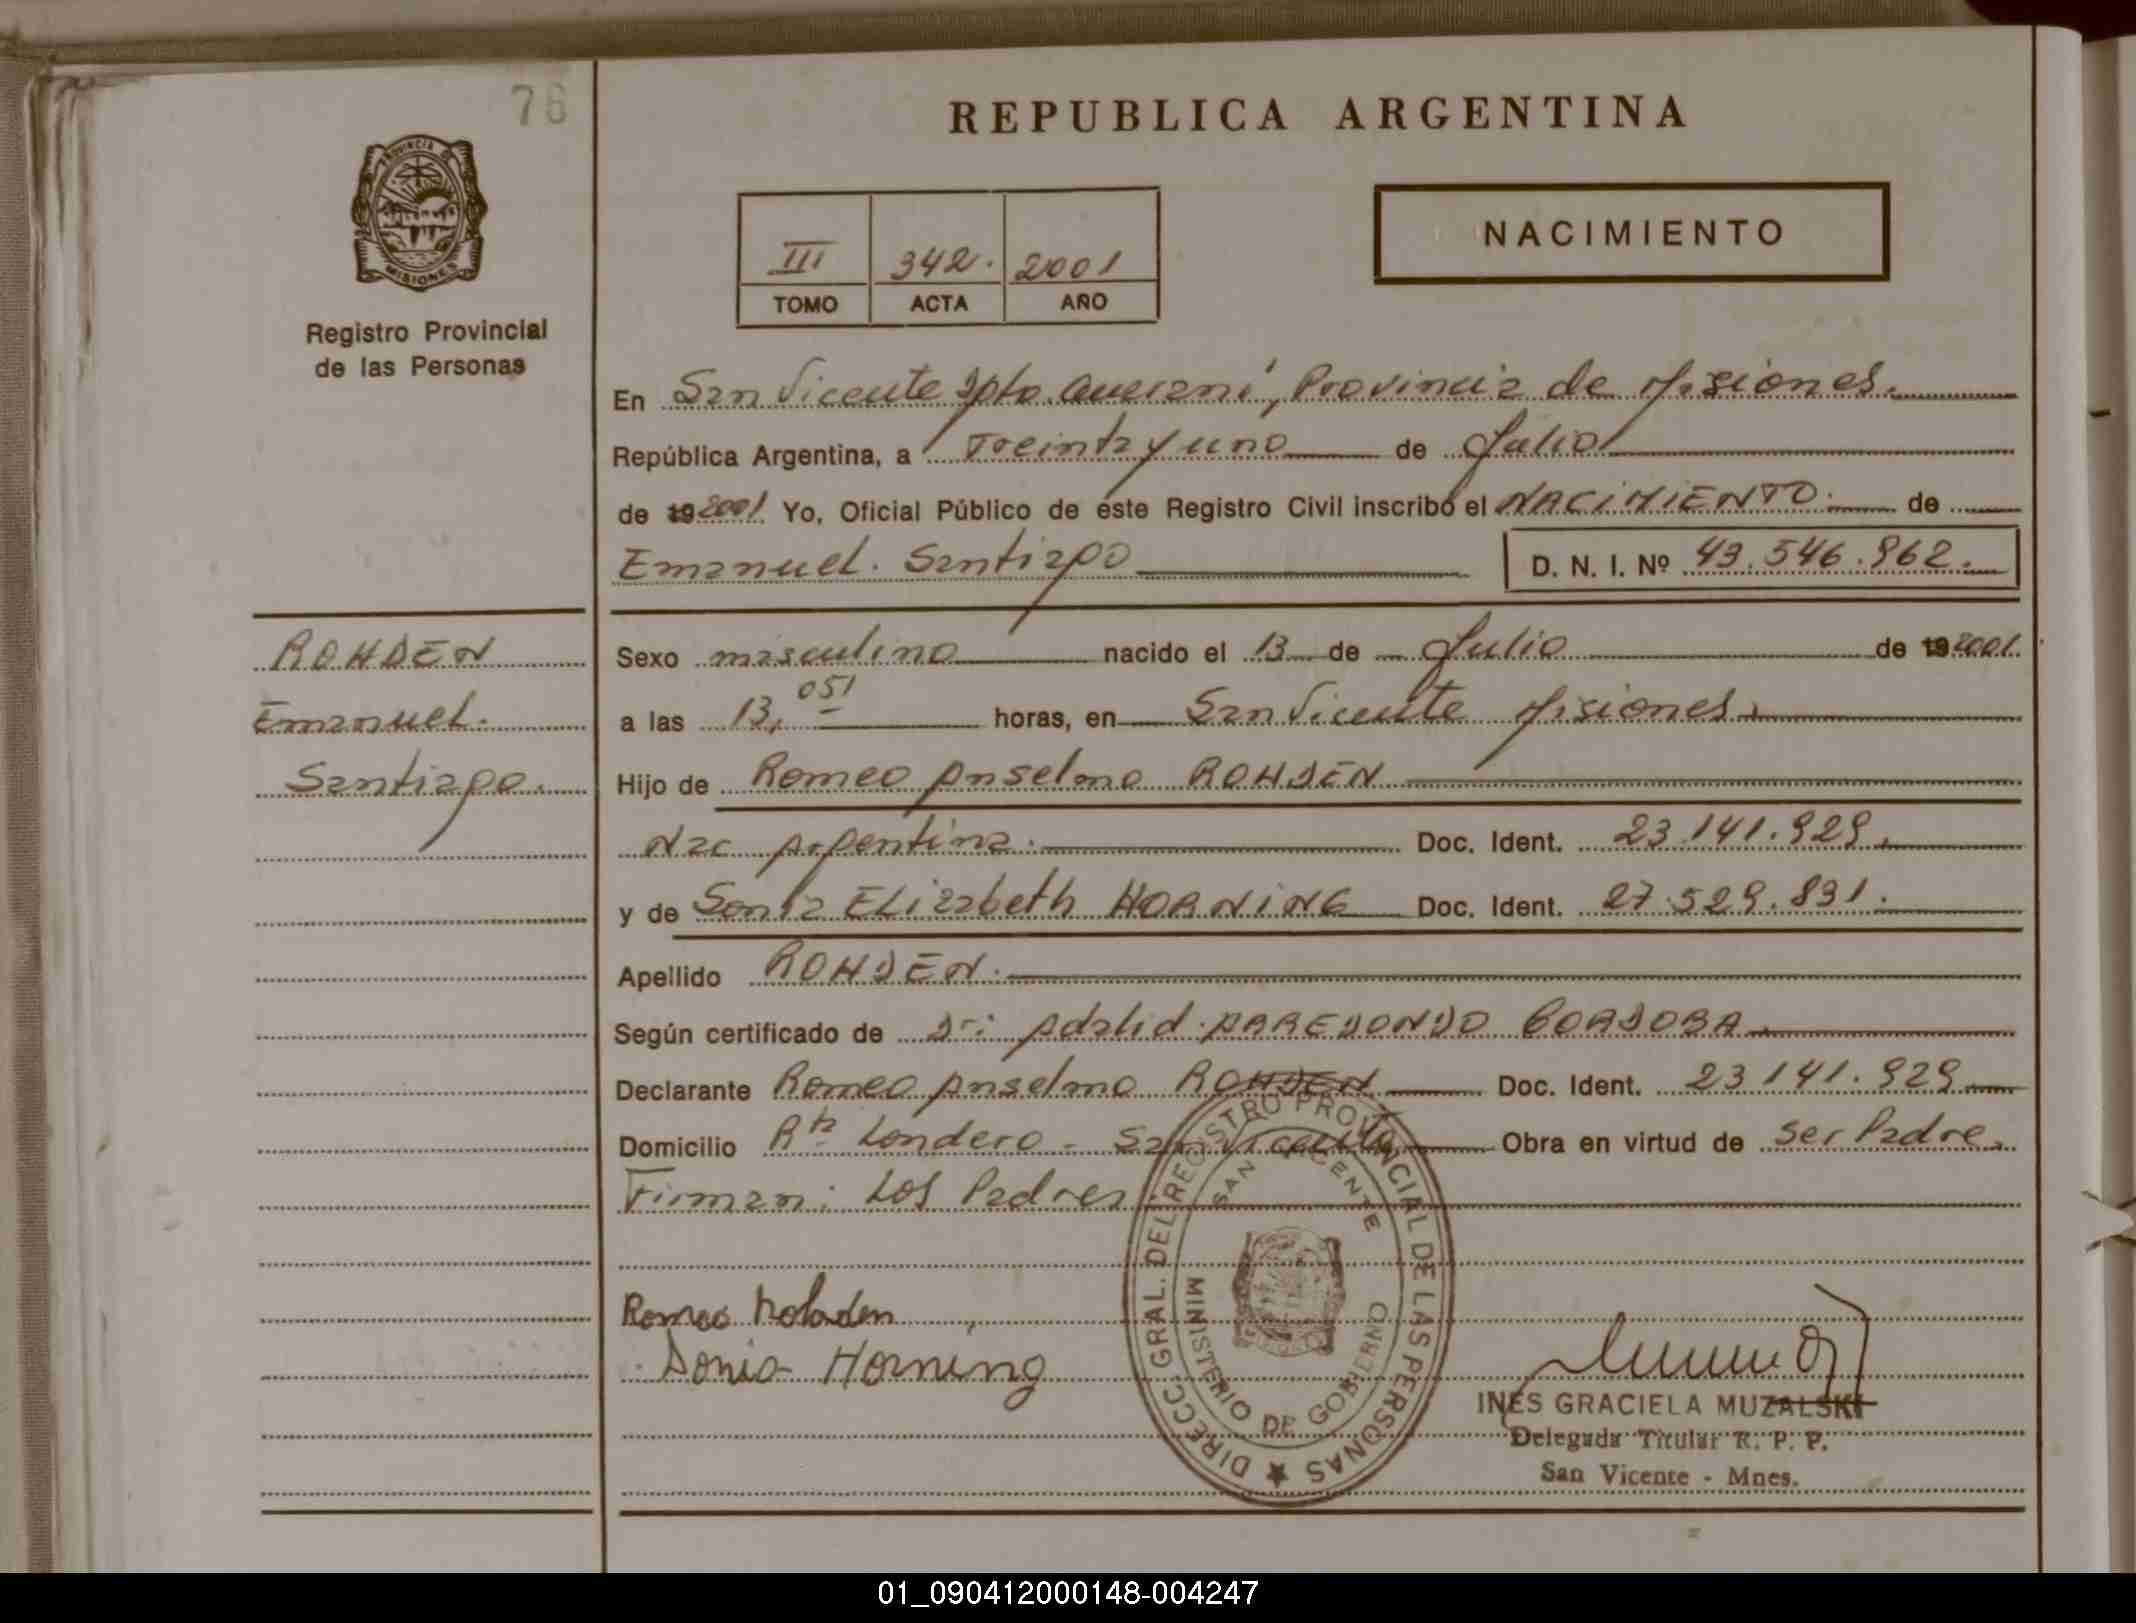 76
REPUBLICA ARGENTINA
PROVINCIA DE
MISIONES
Registro Provincial
de las Personas
III 342. 2001
TOMO ACTA AÑO
NACIMIENTO
En San Vicente Dpto. Guaraní, Provincia de Misiones.
República Argentina, a Treinta y uno de Julio
de 19 2001 Yo, Oficial Público de este Registro Civil inscribo el NACIMIENTO. de
Emanuel. Santiago D. N. I. Nº 43.546.962.
ROHDEN
Emanuel.
Santiago.
Sexo masculino nacido el 13 de Julio de 19 2001.
a las 13, 05 horas, en San Vicente Misiones.
Hijo de Romeo Anselmo ROHDEN
Nac Argentina. Doc. Ident. 23.141.929.
y de Sonia Elizabeth HORNING Doc. Ident. 27.529.831.
Apellido ROHDEN.
Según certificado de Dr: Adalid. ARREDONDO CORDOBA.
Declarante Romeo Anselmo ROHDEN Doc. Ident. 23 141.929
Domicilio Rta Londero - San Vicente Obra en virtud de ser Padre.
Firman: Los Padres
Romeo Rohden
Sonia Horning
DIRECC. GRAL. DEL REGISTRO PROVINCIAL DE LAS PERSONAS
SAN VICENTE
MINISTERIO DE GOBIERNO
INES GRACIELA MUZALSKI
Delegada Titular R. P. P.
San Vicente - Mnes.
01_090412000148-004247